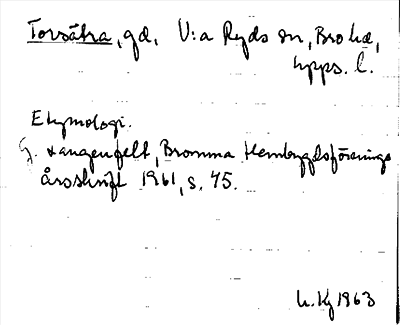 Torsätra, gd, V:a Ryds sn, Bro hd,
Upps. l.
Etymologi.
G. Langenfelt, Bromma Hembygdsförenings
årsskrift 1961, s. 45.
h. Kj 1963